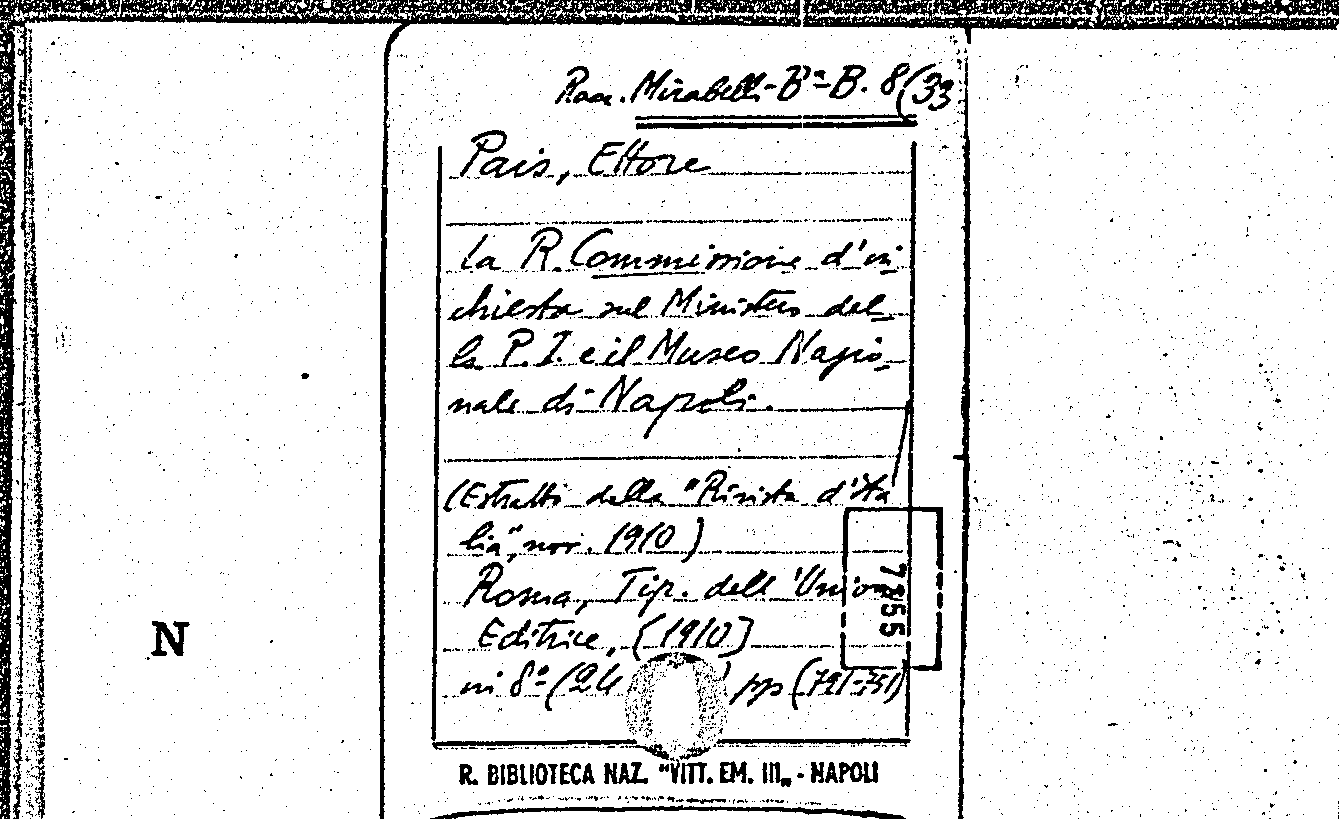 Racc. Mirabelli-Bª-B. 8(33
Pais, Ettore
La R. Commissione d'in
chiesta sul Ministero del_
la P. I. e il Museo Nazio_
nale di Napoli.
(Estratto della "Rivista d'Ita
lia", nov. 1910)
Roma, Tip. dell'Unione
Editrice, [1910]
in 8º (24 pp
7355
N
R. BIBLIOTECA NAZ. "VITT. EM. III„ - NAPOLI